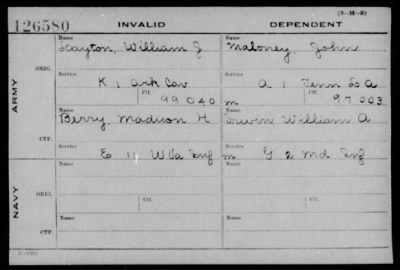 (3-14-3)
126580 INVALID DEPENDENT
Name Name
Layton, William J. Maloney, John
ORIG. Service Service
K 1 Ark Cav A 1 Tenn L A
Ctf. Ctf.
99040 m 97003
ARMY
Name Name
Berry, Madison H Irwin William A
CTF. Service Service
E 11 W Va Inf m G 2 Md Inf
Name Name
ORIG. Service Service
Ctf. Ctf.
NAVY
Name Name
CTF. Service Service